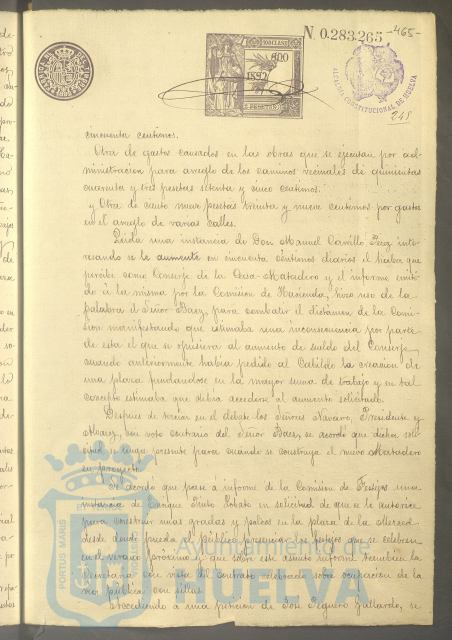 N. 0.283.265 -465-
100 CLASE
1897
ALCALDIA CONSTITUCIONAL DE HUELVA
cincuenta centimos.
Otra de gastos causados en las obras que se ejecutan por ad-
ministracion para arreglo de los caminos vecinales de quinientas
cuarenta y tres pesetas setenta y cinco centimos.
y Otra de ciento nueve pesetas treinta y nueve centimos por gastos
en el arreglo de varias calles.
Leida una instancia de Don Manuel Carrillo Perez inte-
resando se le aumente en cincuenta céntimos diarios el haber que
percibe como Conserje de la Casa-Matadero y el informe emiti-
do á la misma por la Comision de Hacienda, hizo uso de la
palabra el Señor Baez, para combatir el dictámen de la Comi-
sion manifestando que estimaba una inconsecuencia por parte
de esta el que se opusiera al aumento de sueldo del Conserje
cuando anteriormente habia pedido al Cabildo la creacion de
una plaza fundandose en la mayor suma de trabajo y en tal
concepto estimaba que debia accederse al aumento solicitado.
Despues de terciar en el debate los Señores Navarro, Presidente y
con voto contrario del Señor Baez, se acordó que dicha soli-
citud se tenga presente para cuando se construya el nuevo Matadero
en proyecto.
Se acordó que pase á informe de la Comision de Festejos una
instancia de Enrique Pinto Lobato en solicitud de que se le autorice
para construir unas gradas y palcos en la plaza de la Merced
desde donde pueda el público presenciar los festejos que se celebren
en el verano próximo y que sobre este asunto informe tambien la
Secretaria con vista del contrato celebrado sobre ocupacion de la
via pública con sillas.
Accediendo á una peticion de José Seguero Gallardo, se
PORTUS MARIS
Ayuntamiento de
HUELVA